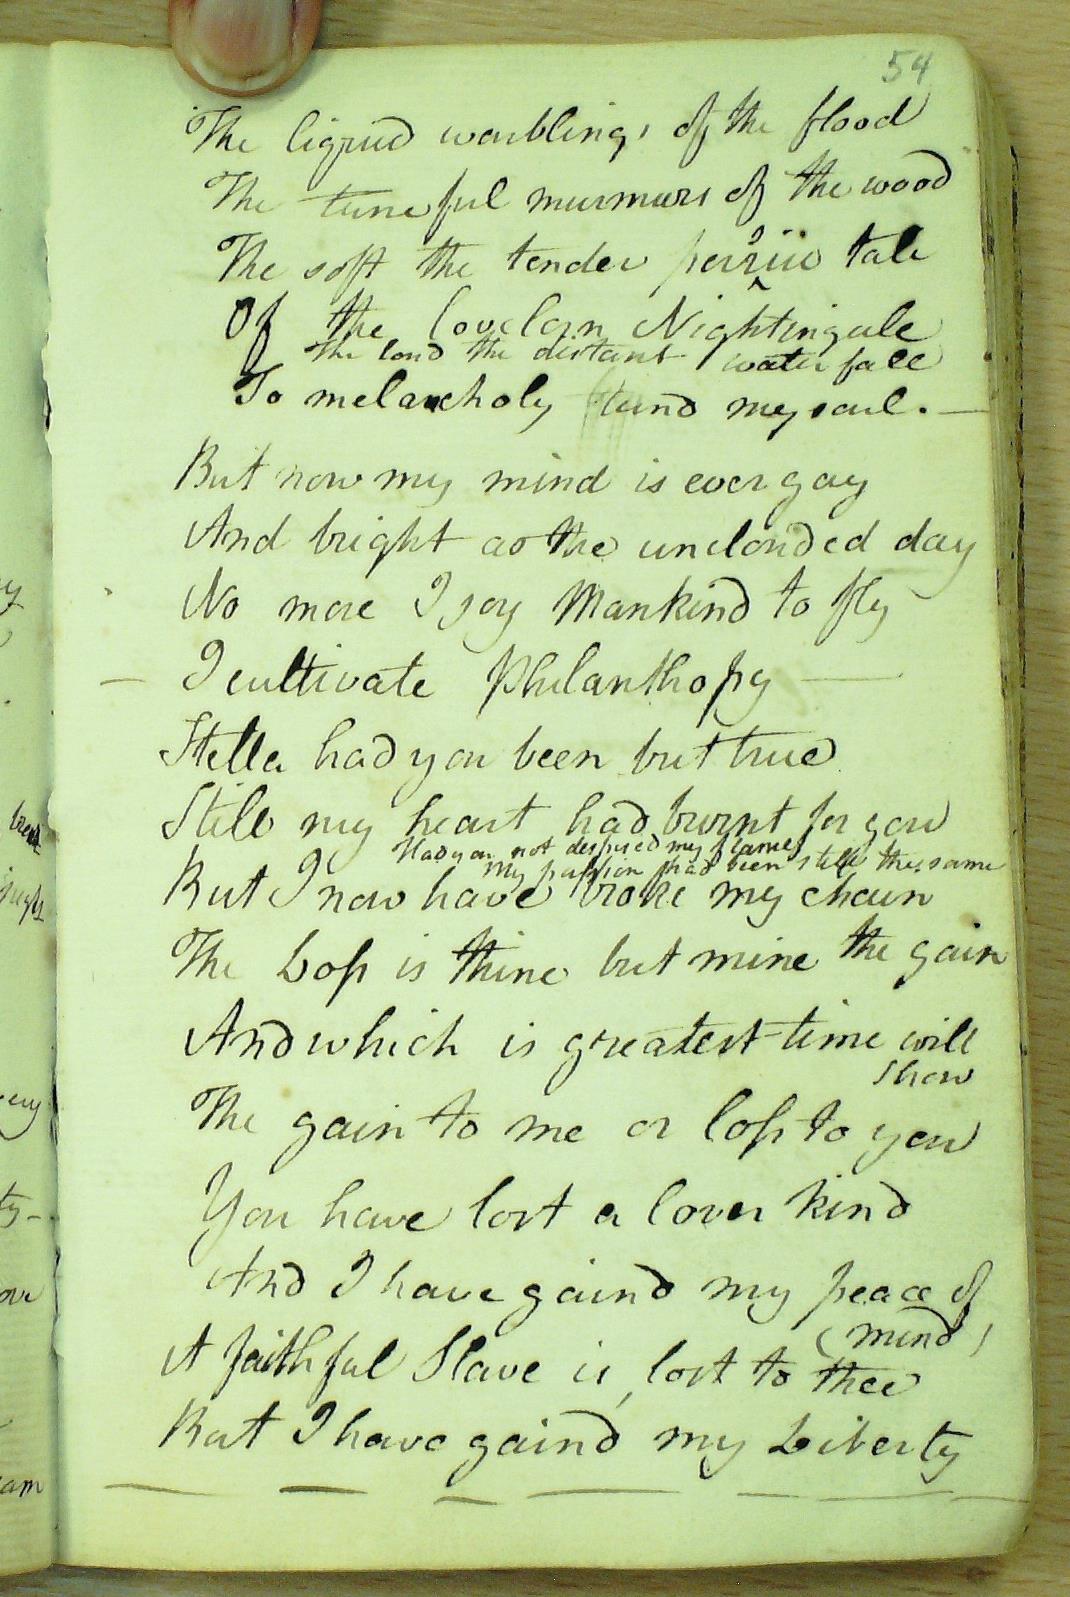 54
The liquid warblings of the flood
The tuneful murmurs of the wood
The soft the tender tale
Of the lovelorn Nightingale
The loud the distant water fall
To melancholy tund my soul. —
But now my mind is ever gay
And bright as the unclouded day
No more I joy Mankind to fly
— I cultivate Philanthopy —
Stella had you been but true
Still my heart had burnt for you
Had you not despised my flame
My passion had been still the same
But I now have broke my chain
The Loss is thine but mine the gain
And which is greatest time will
show
The gain to me or loss to you
You have lost a lover kind
And I have gaind my peace of
(mind)
A faithful Slave is lost to thee
But I have gaind my Liberty